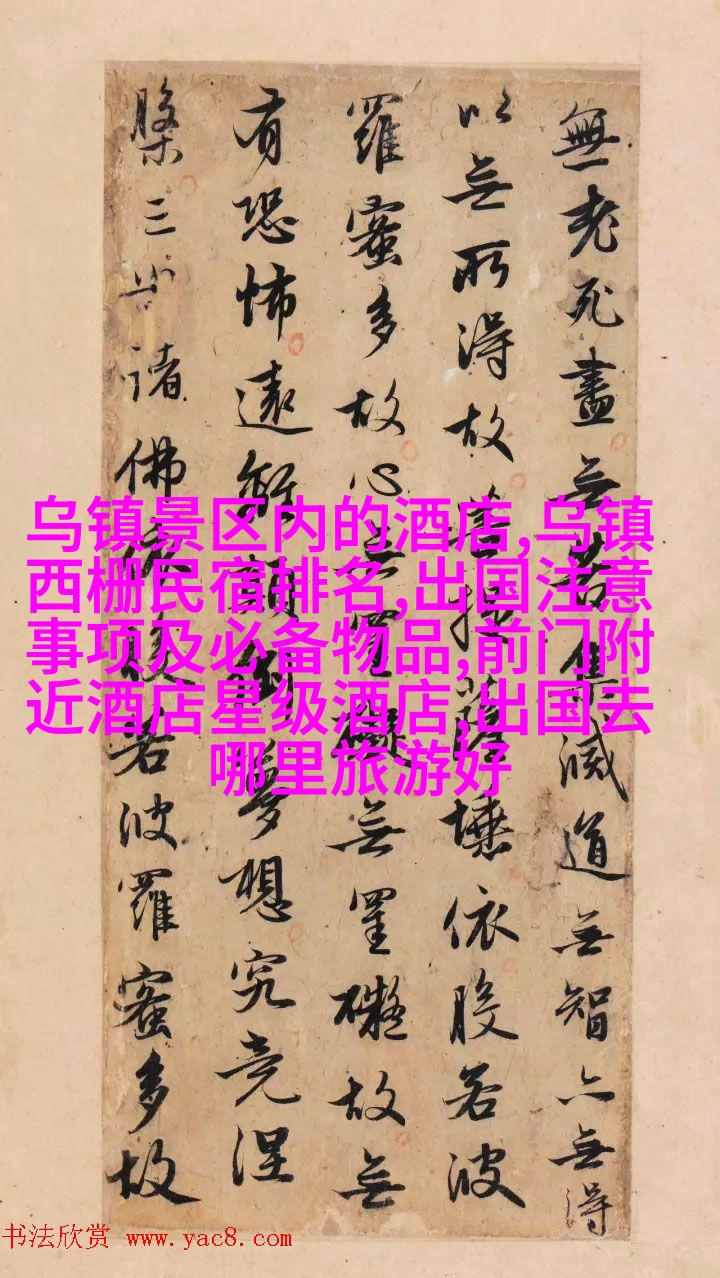 無老死盡無苦集滅道無智亦無得
以無所得故菩提薩埵依般若波
羅蜜多故心無罣礙無罣礙故無
有恐怖遠離顛倒夢想究竟涅
槃三世諸佛依般若波羅蜜多故
乌镇景区内的酒店,乌镇
西栅民宿排名,出国注意
事项及必备物品,前门附
近酒店星级酒店,出国去
哪里旅游好
书法欣赏 www.yac8.com